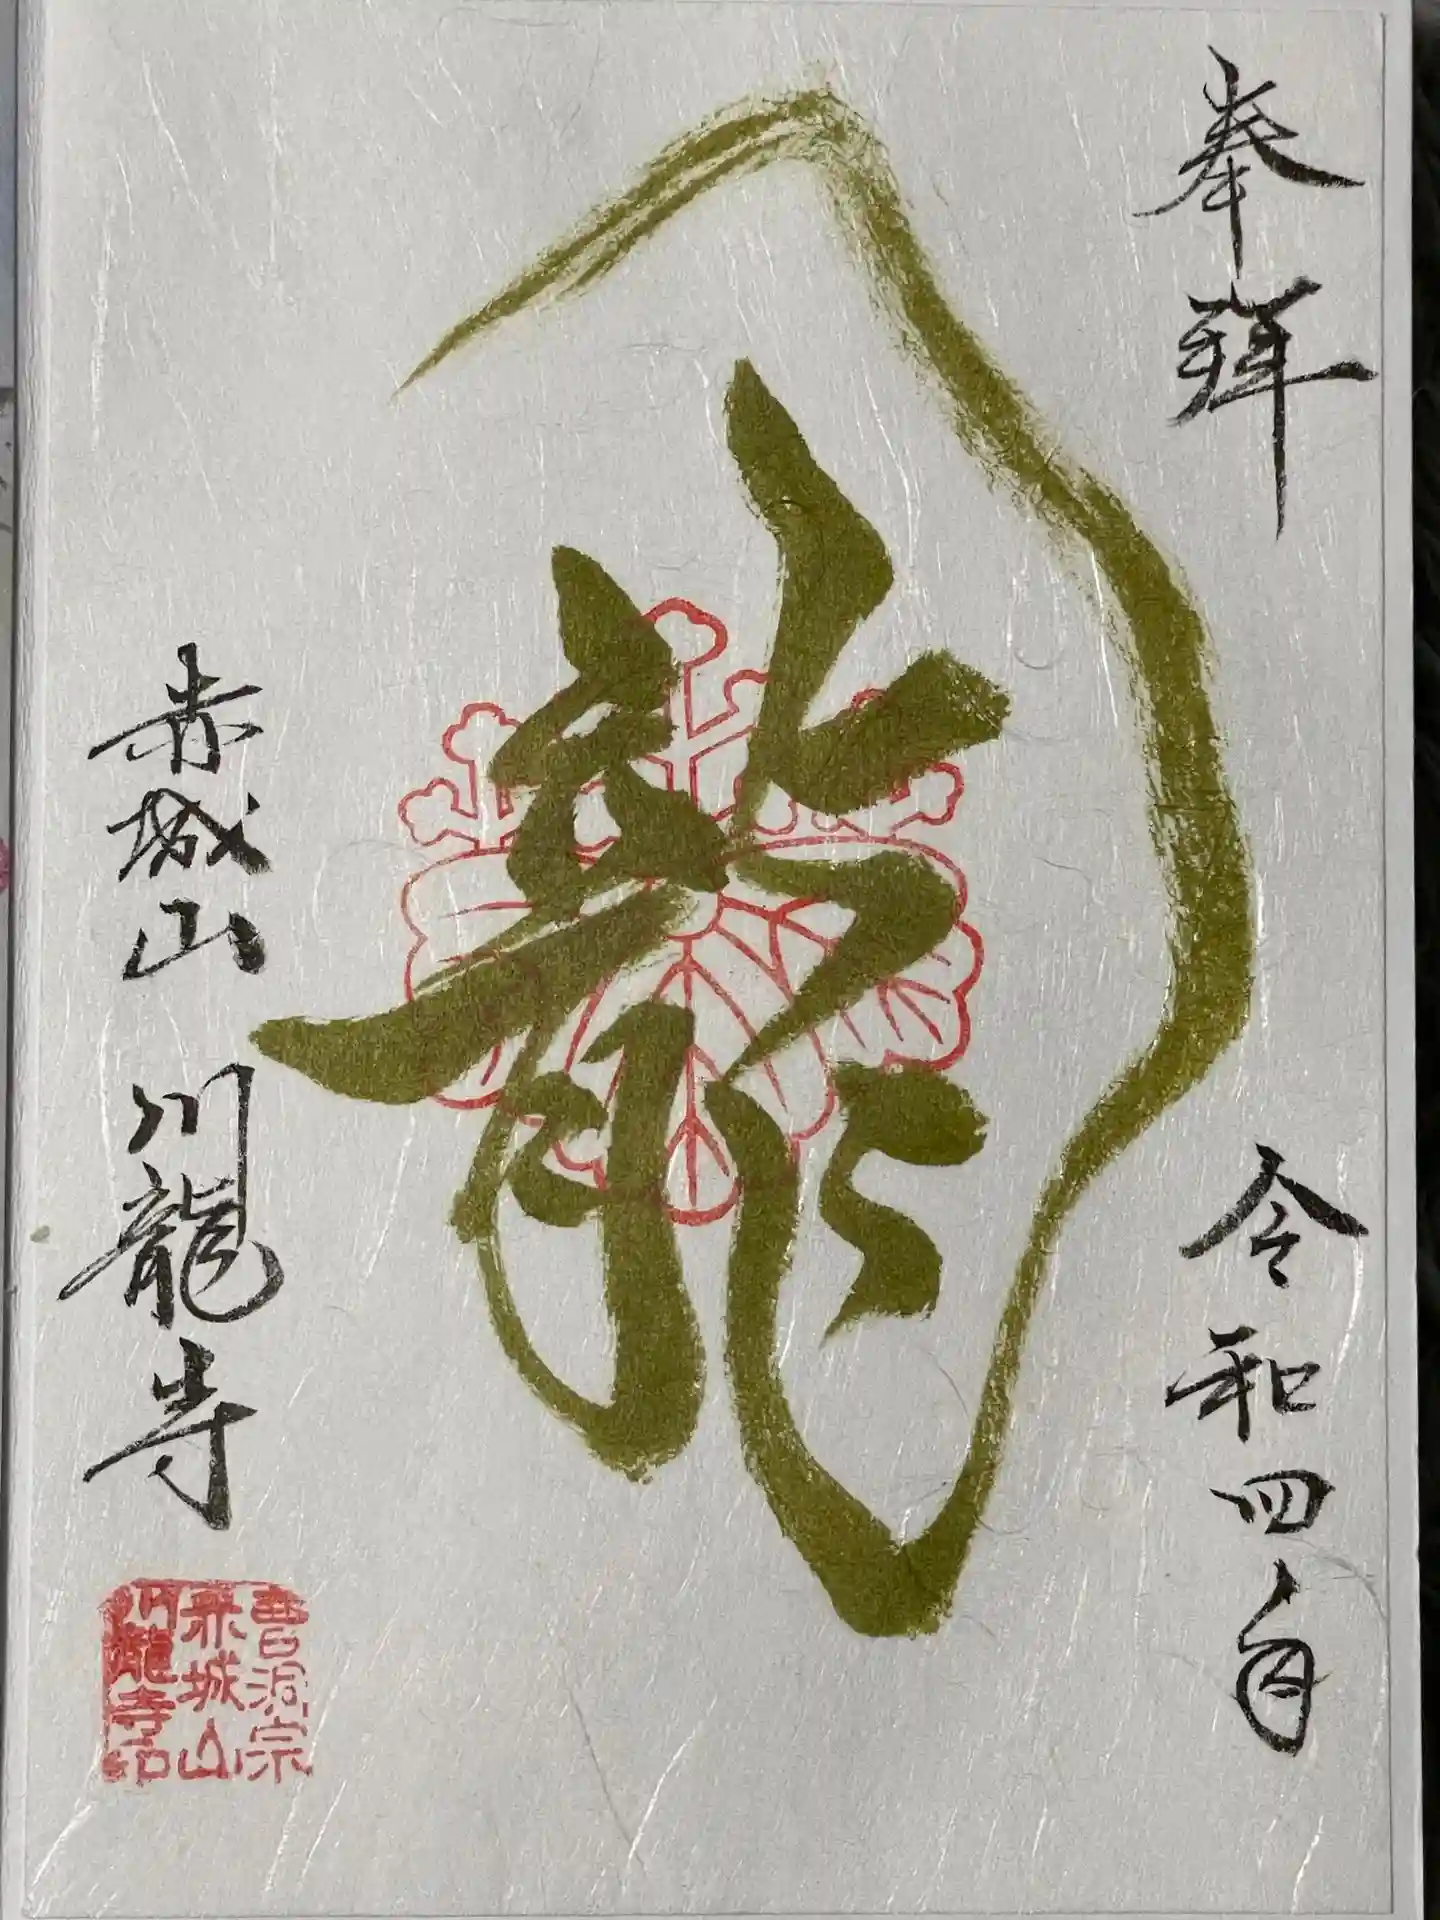 奉拜
令和四年
龍
赤城山 川龍寺
曹洞宗
赤城山
川龍寺印